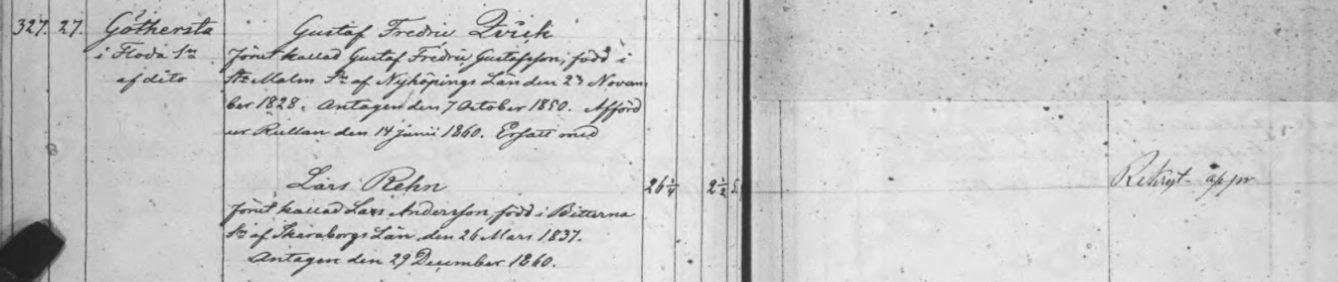 327. 27. Göthersta Gustaf Fredric Qvick
i Floda Sn förut kallad Gustaf Fredric Gustafsson, född i
af dito St: Malm Sn af Nyköpings Län den 23 Novem
ber 1828. Antagen den 7 October 1850. Afförd
ur Rullan den 14 junii 1860. Ersatt med
Lars Rehn 26 1/4 2 1/2
förut kallad Lars Andersson född i Bitterna
Sn af Skaraborgs Län, den 26 Mars 1837.
Antagen den 29 December 1860.
Rekryt appr